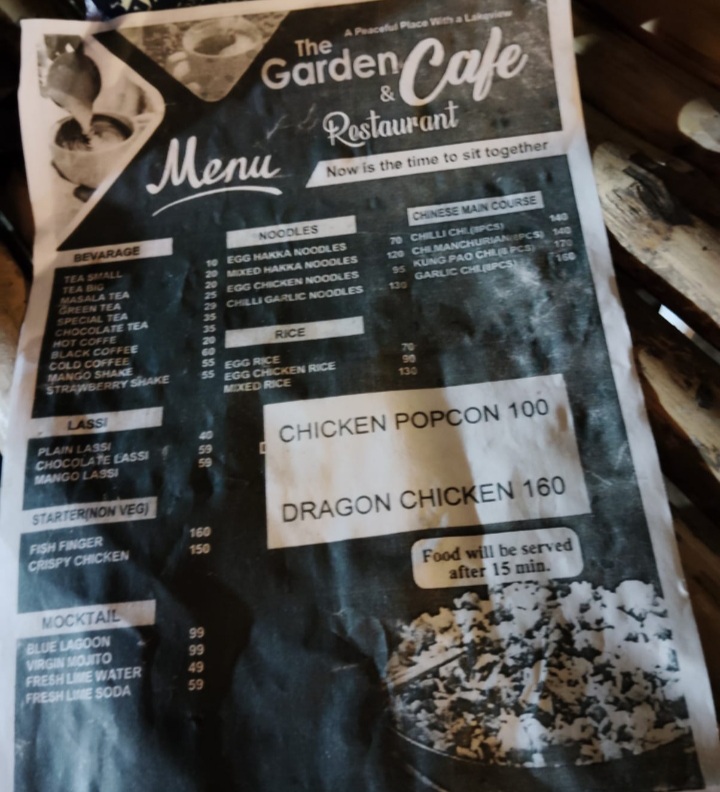 A Peaceful Place With a Lakeview
The
Garden Cafe
&
Restaurant
Menu
Now is the time to sit together
BEVARAGE
TEA SMALL 10
TEA BIG 20
MASALA TEA 20
GREEN TEA 25
SPECIAL TEA 25
CHOCOLATE TEA 35
HOT COFFE 35
BLACK COFFEE 20
COLD COFFEE 60
MANGO SHAKE 55
STRAWBERRY SHAKE 55
LASSI
PLAIN LASSI 40
CHOCOLATE LASSI 59
MANGO LASSI 59
STARTER(NON VEG)
FISH FINGER 160
CRISPY CHICKEN 150
MOCKTAIL
BLUE LAGOON 99
VIRGIN MOJITO 99
FRESH LIME WATER 49
FRESH LIME SODA 59
NOODLES
EGG HAKKA NOODLES 70
MIXED HAKKA NOODLES 120
EGG CHICKEN NOODLES 95
CHILLI GARLIC NOODLES 130
RICE
EGG RICE 70
EGG CHICKEN RICE 90
MIXED RICE 130
CHINESE MAIN COURSE
CHILLI CHI.(8PCS) 140
CHI.MANCHURIAN(8PCS) 140
KUNG PAO CHI.(8 PCS) 170
GARLIC CHI.(8PCS) 160
CHICKEN POPCON 100
DRAGON CHICKEN 160
Food will be served
after 15 min.